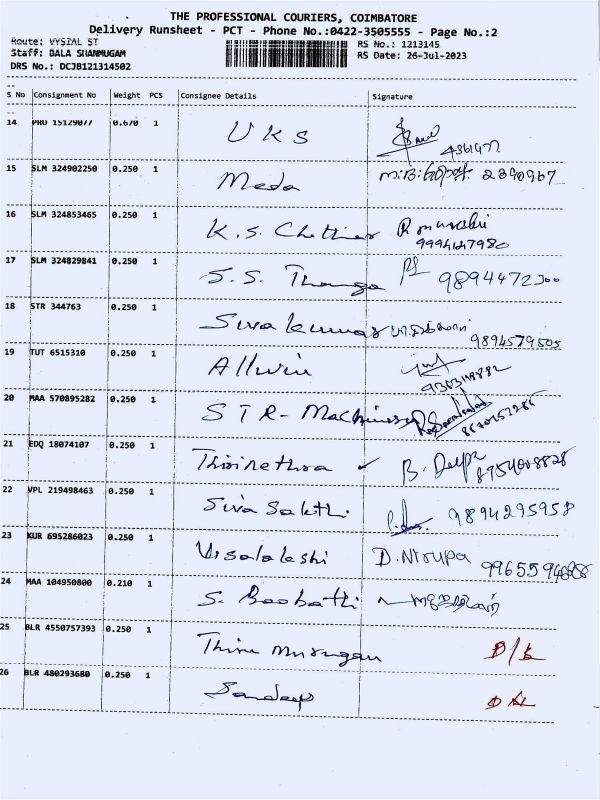 THE PROFESSIONAL COURIERS, COIMBATORE
Delivery Runsheet - PCT - Phone No.:0422-3505555 - Page No.:2
Route: VYSIAL ST RS No.: 1213145
Staff: BALA SHANMUGAM RS Date: 26-Jul-2023
DRS No.: DCJB121314502
S No Consignment No Weight PCS Consignee Details Signature
14 PRO 15129077 0.670 1 UKS
15 SLM 324902250 0.250 1 Meda 2390967
16 SLM 324853465 0.250 1 K.S. Chettiar
17 SLM 324829841 0.250 1 S.S. Thanga 9894472300
18 STR 344763 0.250 1 Siva kumar 9894579505
19 TUT 6515310 0.250 1 Allwin
20 MAA 570895282 0.250 1 STR- Machinery
21 EDQ 18074107 0.250 1 Thirinethra ✓ B. Deepa
22 VPL 219498463 0.250 1 Siva Sakthi 9894295958
23 KUR 695286023 0.250 1 Visalakshi D. Nirupa
24 MAA 104950800 0.210 1 S. Boobathi
25 BLR 4550757393 0.250 1 Thiru murugan D/L
26 BLR 480293680 0.250 1 Sandeep